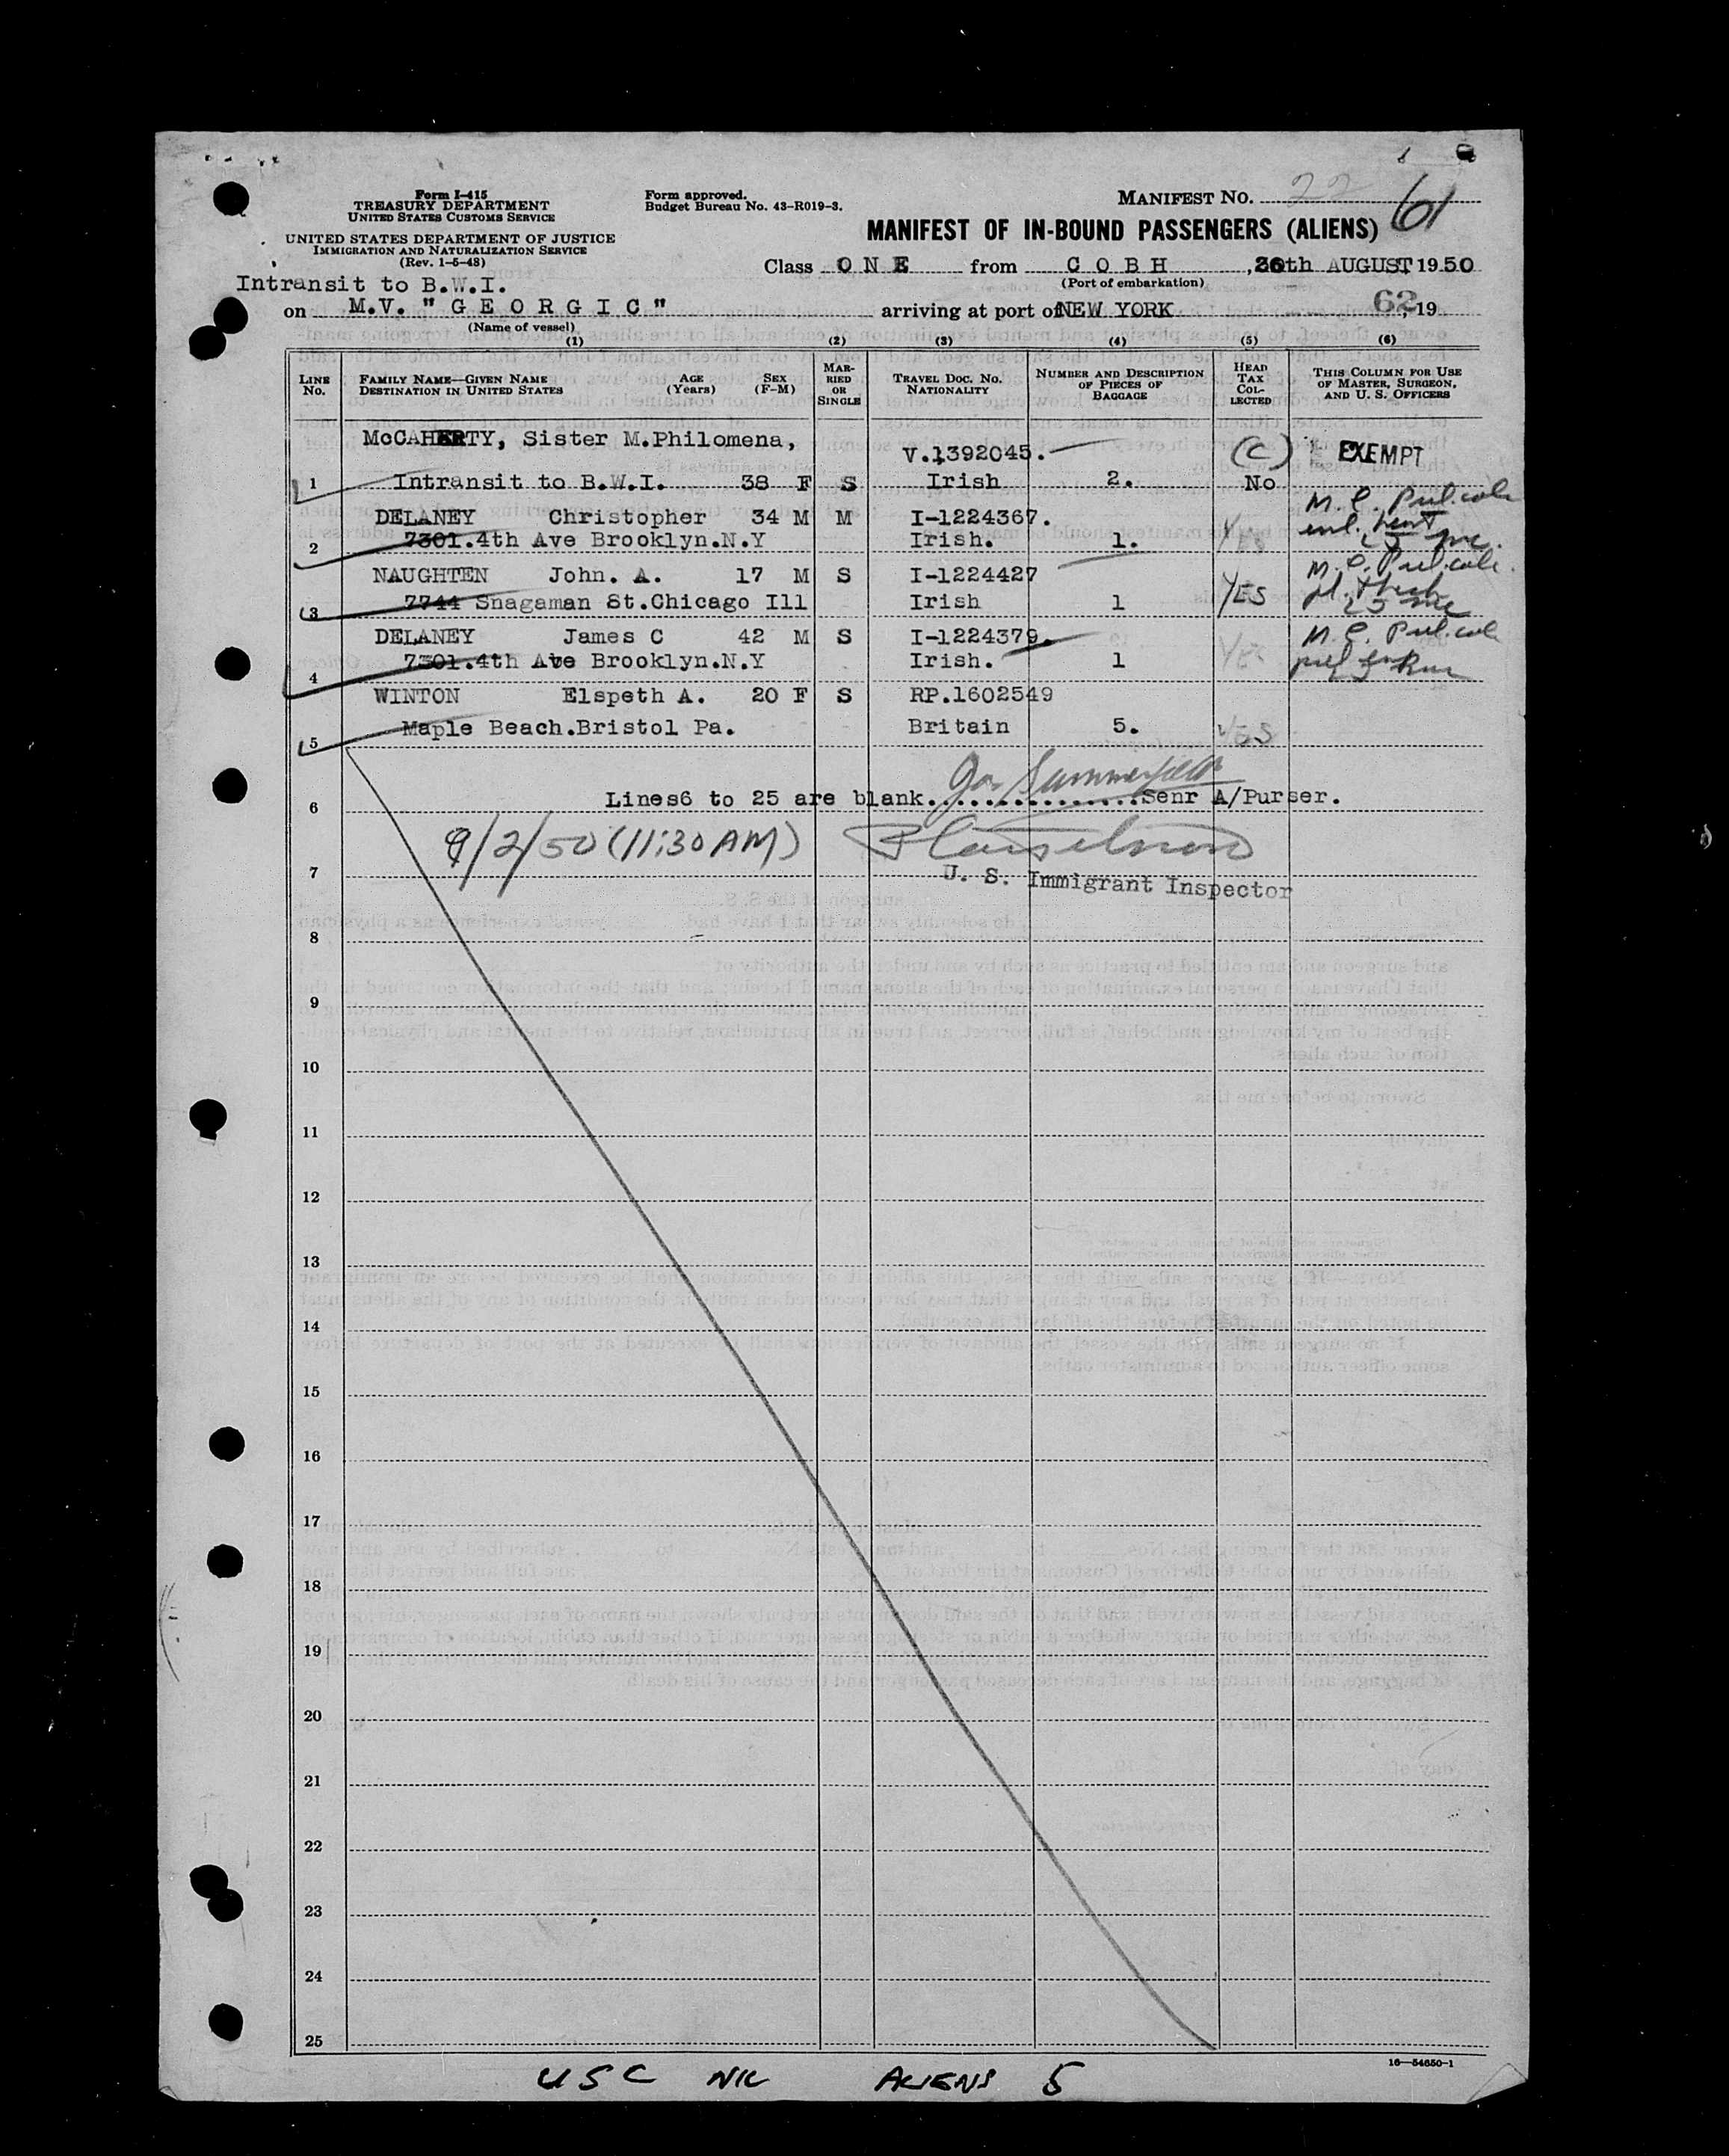 Form I-415
TREASURY DEPARTMENT
UNITED STATES CUSTOMS SERVICE
UNITED STATES DEPARTMENT OF JUSTICE
IMMIGRATION AND NATURALIZATION SERVICE
(Rev. 1-5-48)
Form approved.
Budget Bureau No. 43-R019-3.
MANIFEST NO. 22
61
MANIFEST OF IN-BOUND PASSENGERS (ALIENS)
Class O N E from C O B H , 26th AUGUST 1950
(Port of embarkation)
Intransit to B.W.I.
on M.V. "G E O R G I C" arriving at port of NEW YORK 62, 19
(Name of vessel)
(1) (2) (3) (4) (5) (6)
LINE No. FAMILY NAME—GIVEN NAME DESTINATION IN UNITED STATES AGE (Years) SEX (F-M) MARRIED OR SINGLE TRAVEL DOC. NO. NATIONALITY NUMBER AND DESCRIPTION OF PIECES OF BAGGAGE HEAD TAX COLLECTED THIS COLUMN FOR USE OF MASTER, SURGEON, AND U. S. OFFICERS
McCAHERTY, Sister M.Philomena, V.1392045. (C) EXEMPT
1 Intransit to B.W.I. 38 F S Irish 2. No
DELANEY Christopher 34 M M I-1224367. M.C.
2 7301.4th Ave Brooklyn.N.Y Irish. 1. YES
NAUGHTEN John. A. 17 M S I-1224427 M.C.
3 7744 Snagaman St.Chicago Ill Irish 1 YES
DELANEY James C 42 M S I-1224379. M.C.
4 7301.4th Ave Brooklyn.N.Y Irish. 1 YES
WINTON Elspeth A. 20 F S RP.1602549
5 Maple Beach.Bristol Pa. Britain 5. YES
6 Lines6 to 25 are blank................Senr A/Purser.
9/2/50 (11:30 AM)
7 U. S. Immigrant Inspector
8
9
10
11
12
13
14
15
16
17
18
19
20
21
22
23
24
25
16—54650-1
USC NIL ALIENS 5